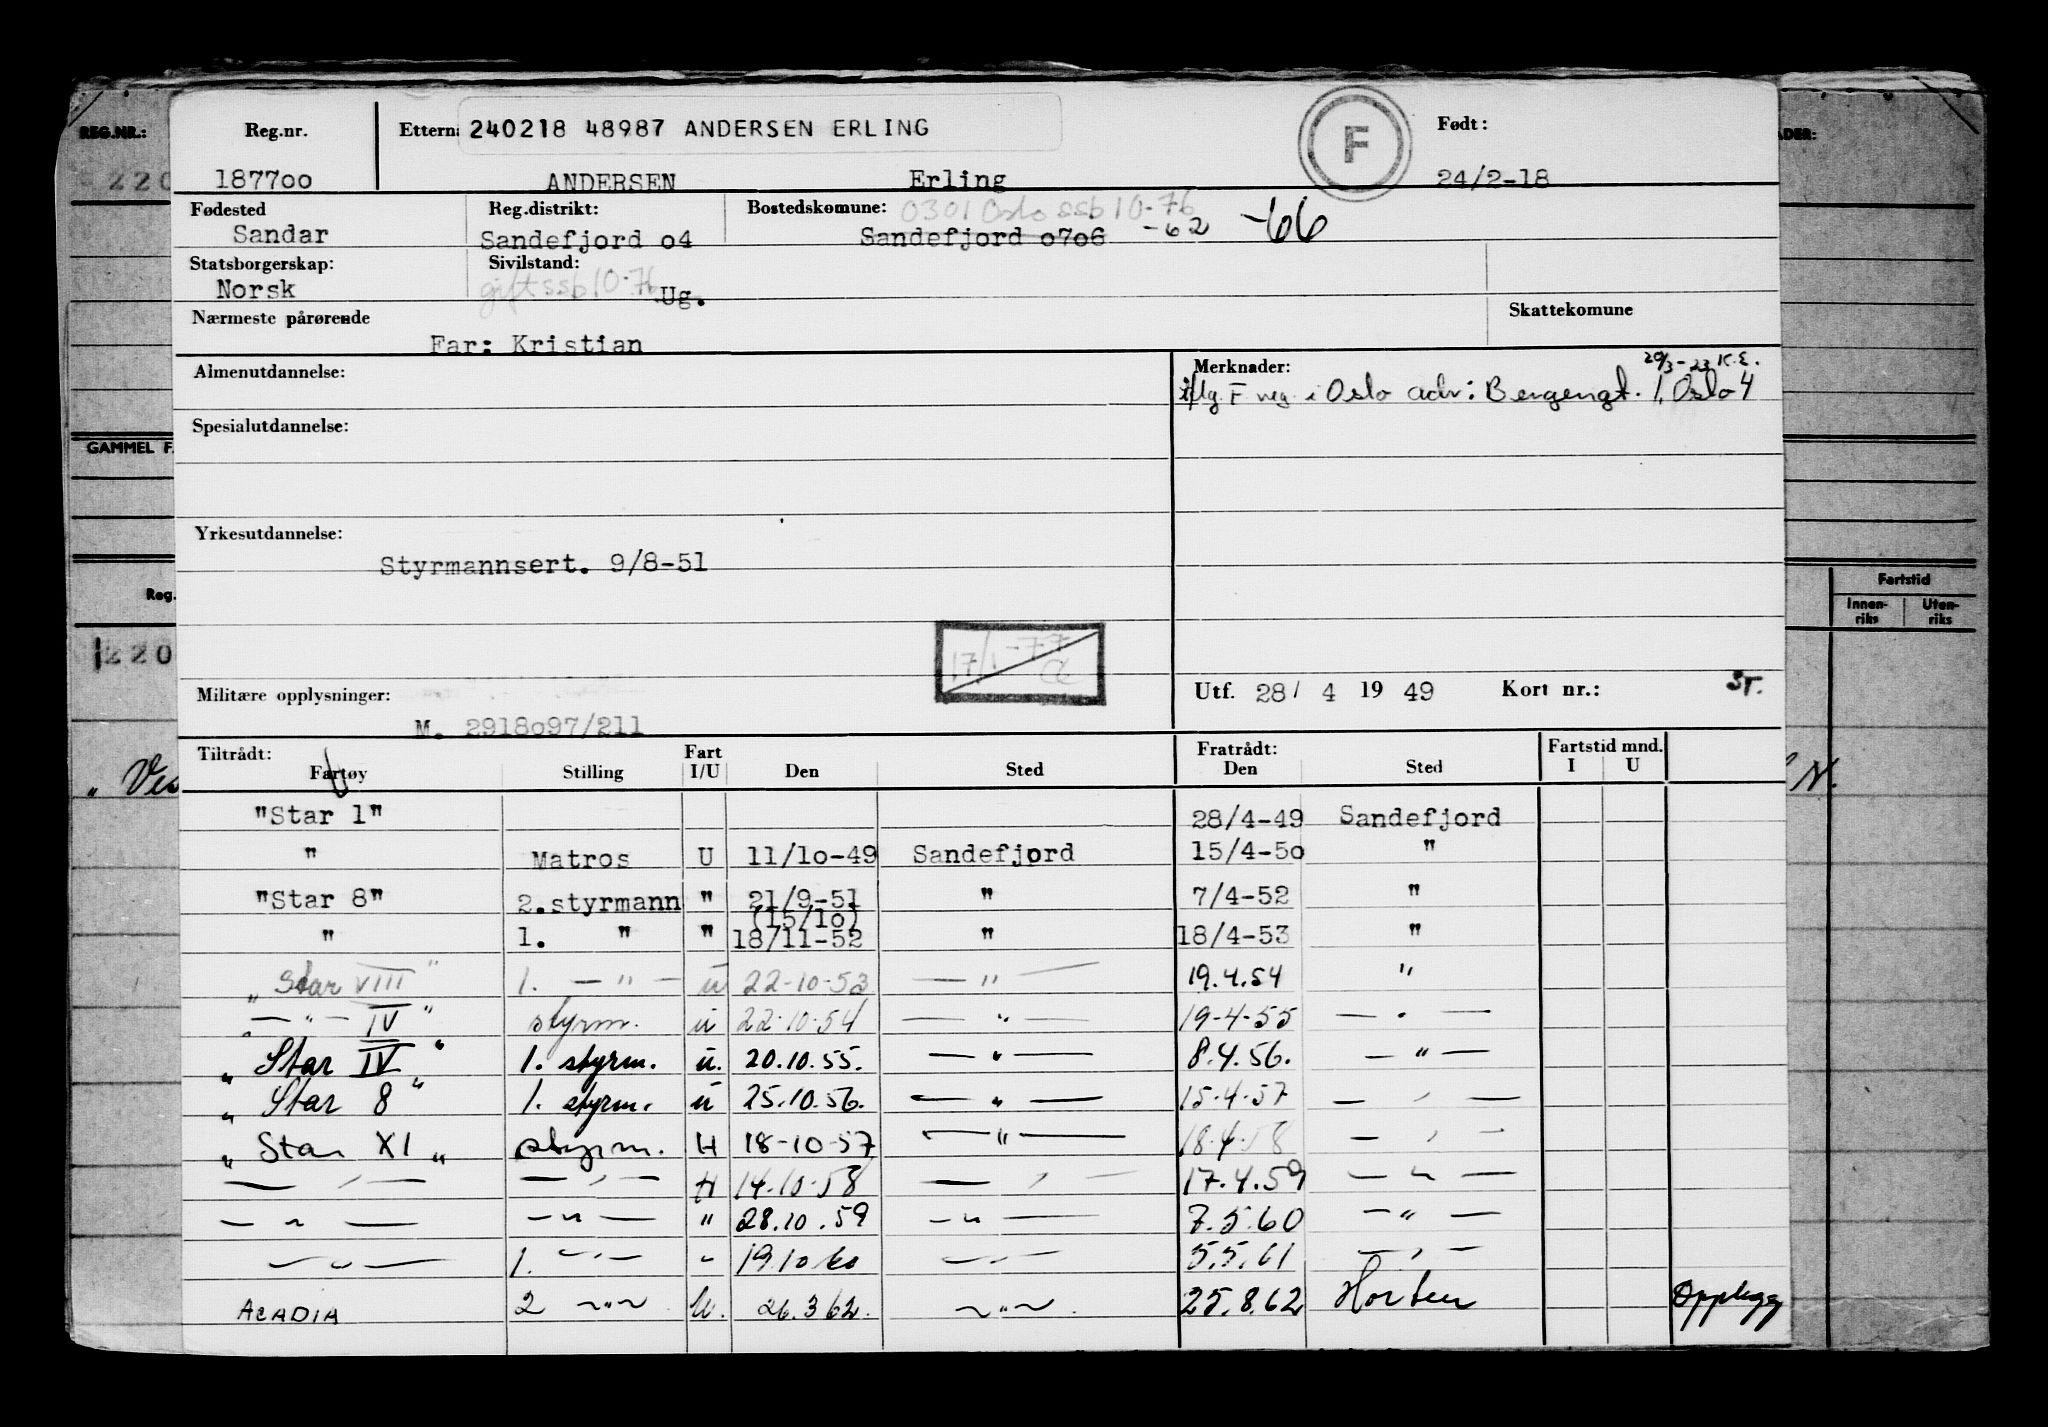 REG.NR.: Reg.nr. Ettern: 240218 48987 ANDERSEN ERLING F Født:
220 187700 ANDERSEN Erling 24/2-18
Fødested Reg.distrikt: Bostedskomune: 0301 Oslo ssb 10-76
Sandar Sandefjord o4 Sandefjord o7o6 -62 -66
Statsborgerskap: Sivilstand:
Norsk gift ssb 10-76 Ug.
Nærmeste pårørende Skattekomune
Far: Kristian
Almenutdannelse: Merknader: 20/3-23 K.E.
iflg F reg i Oslo adr: Bergengt. 1, Oslo 4
Spesialutdannelse:
GAMMEL F
Yrkesutdannelse:
Styrmannsert. 9/8-51
Reg. Fartstid
Innen-riks Uten-riks
220
17/1-77
Militære opplysninger: Utf. 28/ 4 19 49 Kort nr.: ST.
M. 2918o97/211
Tiltrådt: Fart Fratrådt: Fartstid mnd.
Fartøy Stilling I/U Den Sted Den Sted I U
"Star 1" 28/4-49 Sandefjord
" Matros U 11/1o-49 Sandefjord 15/4-5o "
"Star 8" 2.styrmann " 21/9-51 " 7/4-52 "
(15/1o)
" 1. " " 18/11-52 " 18/4-53 "
„Star VIII" 1. — " — u 22-10-53 — " — 19.4.54 "
„— " — IV" styrm. u 22-10-54 — " — 19-4-55 — " —
„Star IV" 1. styrm. u. 20.10.55. — " — 8.4.56. — " —
„Star 8" 1. styrm. u 25.10.56. — " — 15-4-57 — " —
„Star XI" styrm. H 18-10-57 — " — 18-4-58 — " —
— " — — " — H 14.10-58 — " — 17.4.59 — " —
— " — — " — " 28.10.59 — " — 7.5.60 — " —
— " — 1. — " — " 19.10.60 — " — 5.5.61 — " —
ACADIA 2 — " — U. 26.3.62. — " — 25.8.62 Horten Opplegg